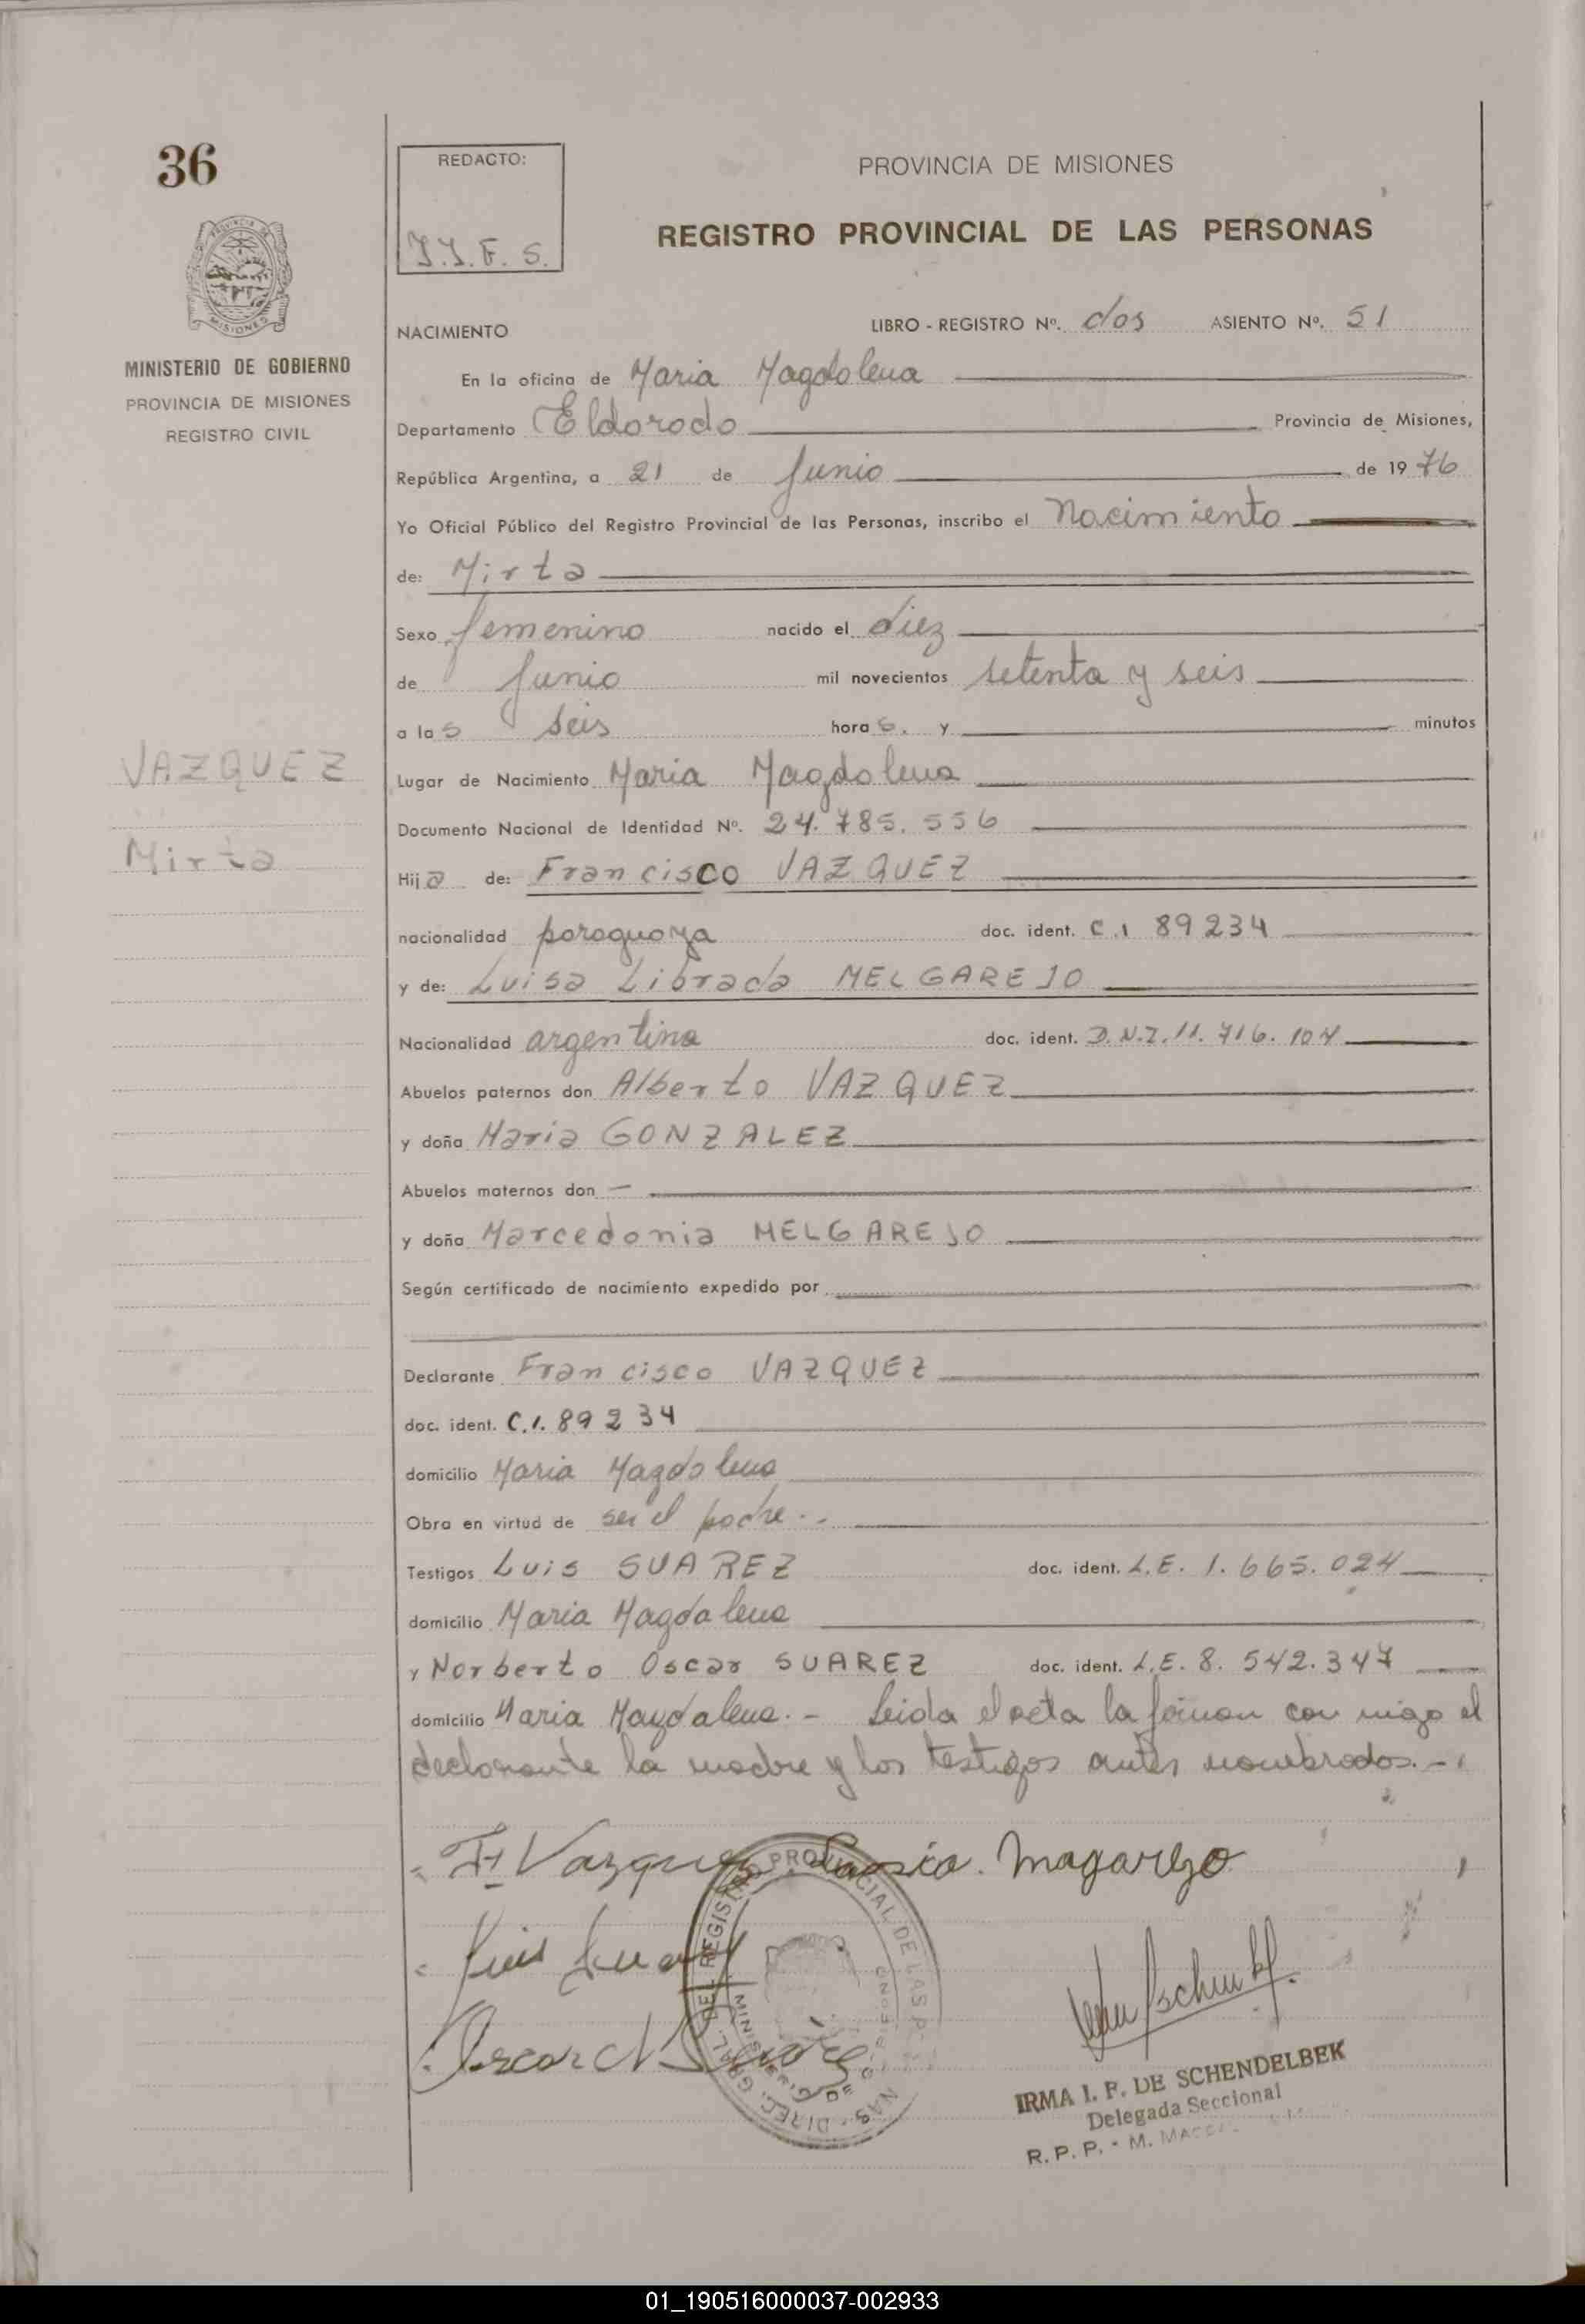 36
REDACTO:
J.J.F.S.
PROVINCIA DE MISIONES
REGISTRO PROVINCIAL DE LAS PERSONAS
MISIONES
MINISTERIO DE GOBIERNO
PROVINCIA DE MISIONES
REGISTRO CIVIL
NACIMIENTO LIBRO - REGISTRO Nº. dos ASIENTO Nº. 51
En la oficina de Maria Magdalena
Departamento Eldorado Provincia de Misiones,
República Argentina, a 21 de Junio de 1976
Yo Oficial Público del Registro Provincial de las Personas, inscribo el Nacimiento
de: Mirta
Sexo femenino nacido el diez
de Junio mil novecientos setenta y seis
a las seis horas. y minutos
VAZQUEZ
Lugar de Nacimiento Maria Magdalena
Documento Nacional de Identidad Nº. 24.785.556
Mirta
Hija de: Francisco VAZQUEZ
nacionalidad paraguaya doc. ident. C.I 89234
y de: Luisa Librada MELGAREJO
Nacionalidad argentina doc. ident. D.N.I. 11.716.104
Abuelos paternos don Alberto VAZQUEZ
y doña Maria GONZALEZ
Abuelos maternos don —
y doña Marcedonia MELGAREJO
Según certificado de nacimiento expedido por
Declarante Francisco VAZQUEZ
doc. ident. C.I. 89234
domicilio Maria Magdalena
Obra en virtud de ser el padre..
Testigos Luis SUAREZ doc. ident. L.E. 1.665.024
domicilio Maria Magdalena
y Norberto Oscar SUAREZ doc. ident. L.E. 8.542.347
domicilio Maria Magdalena.- Leida el acta la firman con migo el
declarante la madre y los testigos antes nombrados.-
F Vazquez Magarejo
Luis Suarez
Oscar N Suarez
DIREC. GRAL. DEL REGISTRO PROVINCIAL DE LAS PERSONAS
MINISTERIO DE GOBIERNO
IRMA I. F. DE SCHENDELBEK
Delegada Seccional
R. P. P. - M.
01_190516000037-002933